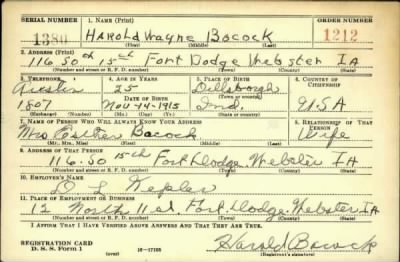 SERIAL NUMBER 1. NAME (Print) ORDER NUMBER
1380 HAROLD WAYNE BOCOCK 1212
(First) (Middle) (Last)
2. ADDRESS (Print)
116 SO 15th FORT Dodge Webster IA
(Number and street or R. F. D. number) (Town) (County) (State)
3. TELEPHONE 4. AGE IN YEARS 5. PLACE OF BIRTH 6. COUNTRY OF CITIZENSHIP
25 Dillsborgh
DATE OF BIRTH
1807 Nov-14-1915 Ind. U.S.A
(Exchange) (Number) (Mo.) (Day) (Yr.) (State or country)
7. NAME OF PERSON WHO WILL ALWAYS KNOW YOUR ADDRESS 8. RELATIONSHIP OF THAT PERSON
Mrs Esther Bocock Wife
(Mr., Mrs., Miss) (First) (Middle) (Last)
9. ADDRESS OF THAT PERSON
116. SO 15th Fort Dodge. Webster IA
(Number and street or R. F. D. number) (Town) (County) (State)
10. EMPLOYER'S NAME
D L Kepler
11. PLACE OF EMPLOYMENT OR BUSINESS
12 North 11 st. Fort. Dodge. Webster IA
(Number and street or R. F. D. number) (Town) (County) (State)
I AFFIRM THAT I HAVE VERIFIED ABOVE ANSWERS AND THAT THEY ARE TRUE.
REGISTRATION CARD
D. S. S. Form 1 (over) 16—17105 Harold Bocock
(Registrant's signature)